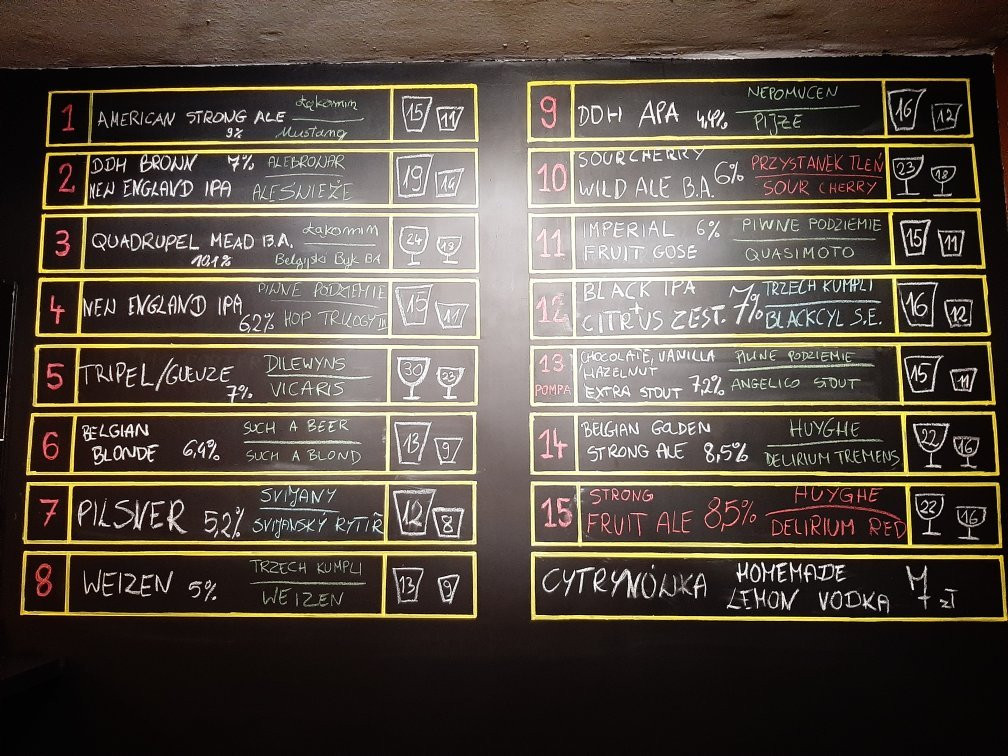 1 AMERICAN STRONG ALE 9% Łąkomin Mustang 15 11
2 DDH BROWN 7% ALEBROWAR 19 14
NEW ENGLAND IPA ALEŚNIEŻE
3 QUADRUPEL MEAD B.A. Łąkomin 24 18
10,1% Belgijski Byk BA
4 NEW ENGLAND IPA PIWNE PODZIEMIE 15 11
6,2% HOP TRILOGY III
5 TRIPEL/GUEUZE DILEWYNS 30 23
7% VICARIS
6 BELGIAN SUCH A BEER 13 9
BLONDE 6,4% SUCH A BLOND
7 PILSNER 5,2% SVIJANY 12 8
SVIJANSKÝ RYTÍŘ
8 WEIZEN 5% TRZECH KUMPLI 13 9
WEIZEN
9 DDH APA 4,4% NEPOMUCEN 16 12
PIJŻE
10 SOUR CHERRY 6% PRZYSTANEK TLEŃ 23 18
WILD ALE B.A. SOUR CHERRY
11 IMPERIAL 6% PIWNE PODZIEMIE 15 11
FRUIT GOSE QUASIMOTO
12 BLACK IPA 7% TRZECH KUMPLI 16 12
+ CITRUS ZEST. BLACKCYL S.E.
13 CHOCOLATE, VANILLA PIWNE PODZIEMIE 15 11
POMPA HAZELNUT
EXTRA STOUT 7,2% ANGELICO STOUT
14 BELGIAN GOLDEN HUYGHE 22 16
STRONG ALE 8,5% DELIRIUM TREMENS
15 STRONG HUYGHE 22 16
FRUIT ALE 8,5% DELIRIUM RED
CYTRYNÓWKA HOMEMADE 7 zł
LEMON VODKA